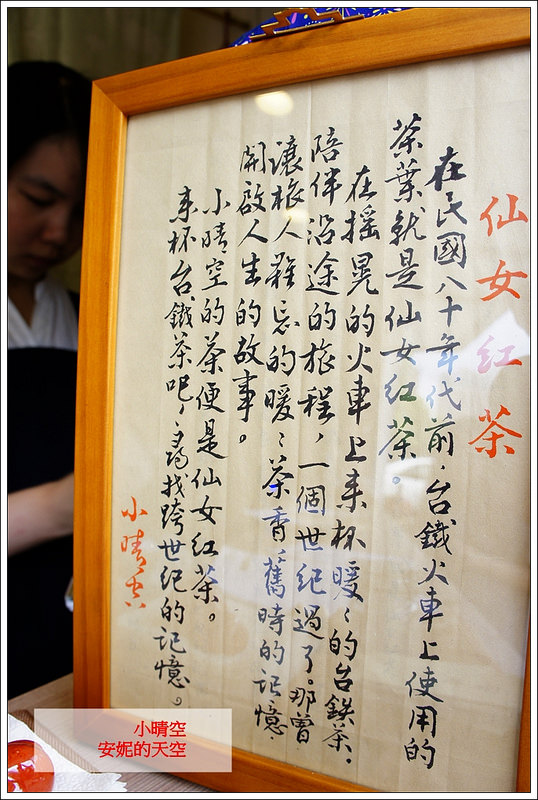 仙女紅茶
在民國八十年代前，台鐵火車上使用的
茶葉就是仙女紅茶。
在搖晃的火車上来杯暖ミ的台鉄茶。
陪伴沿途的旅程，一個世纪過了。那曾
讓旅人難忘的暖ミ茶香，舊時的记憶，
開啟人生的故事。
小晴空的茶便是仙女紅茶。
来杯台鐵茶吧，尋找跨世纪的记憶。
小晴空
小晴空
安妮的天空